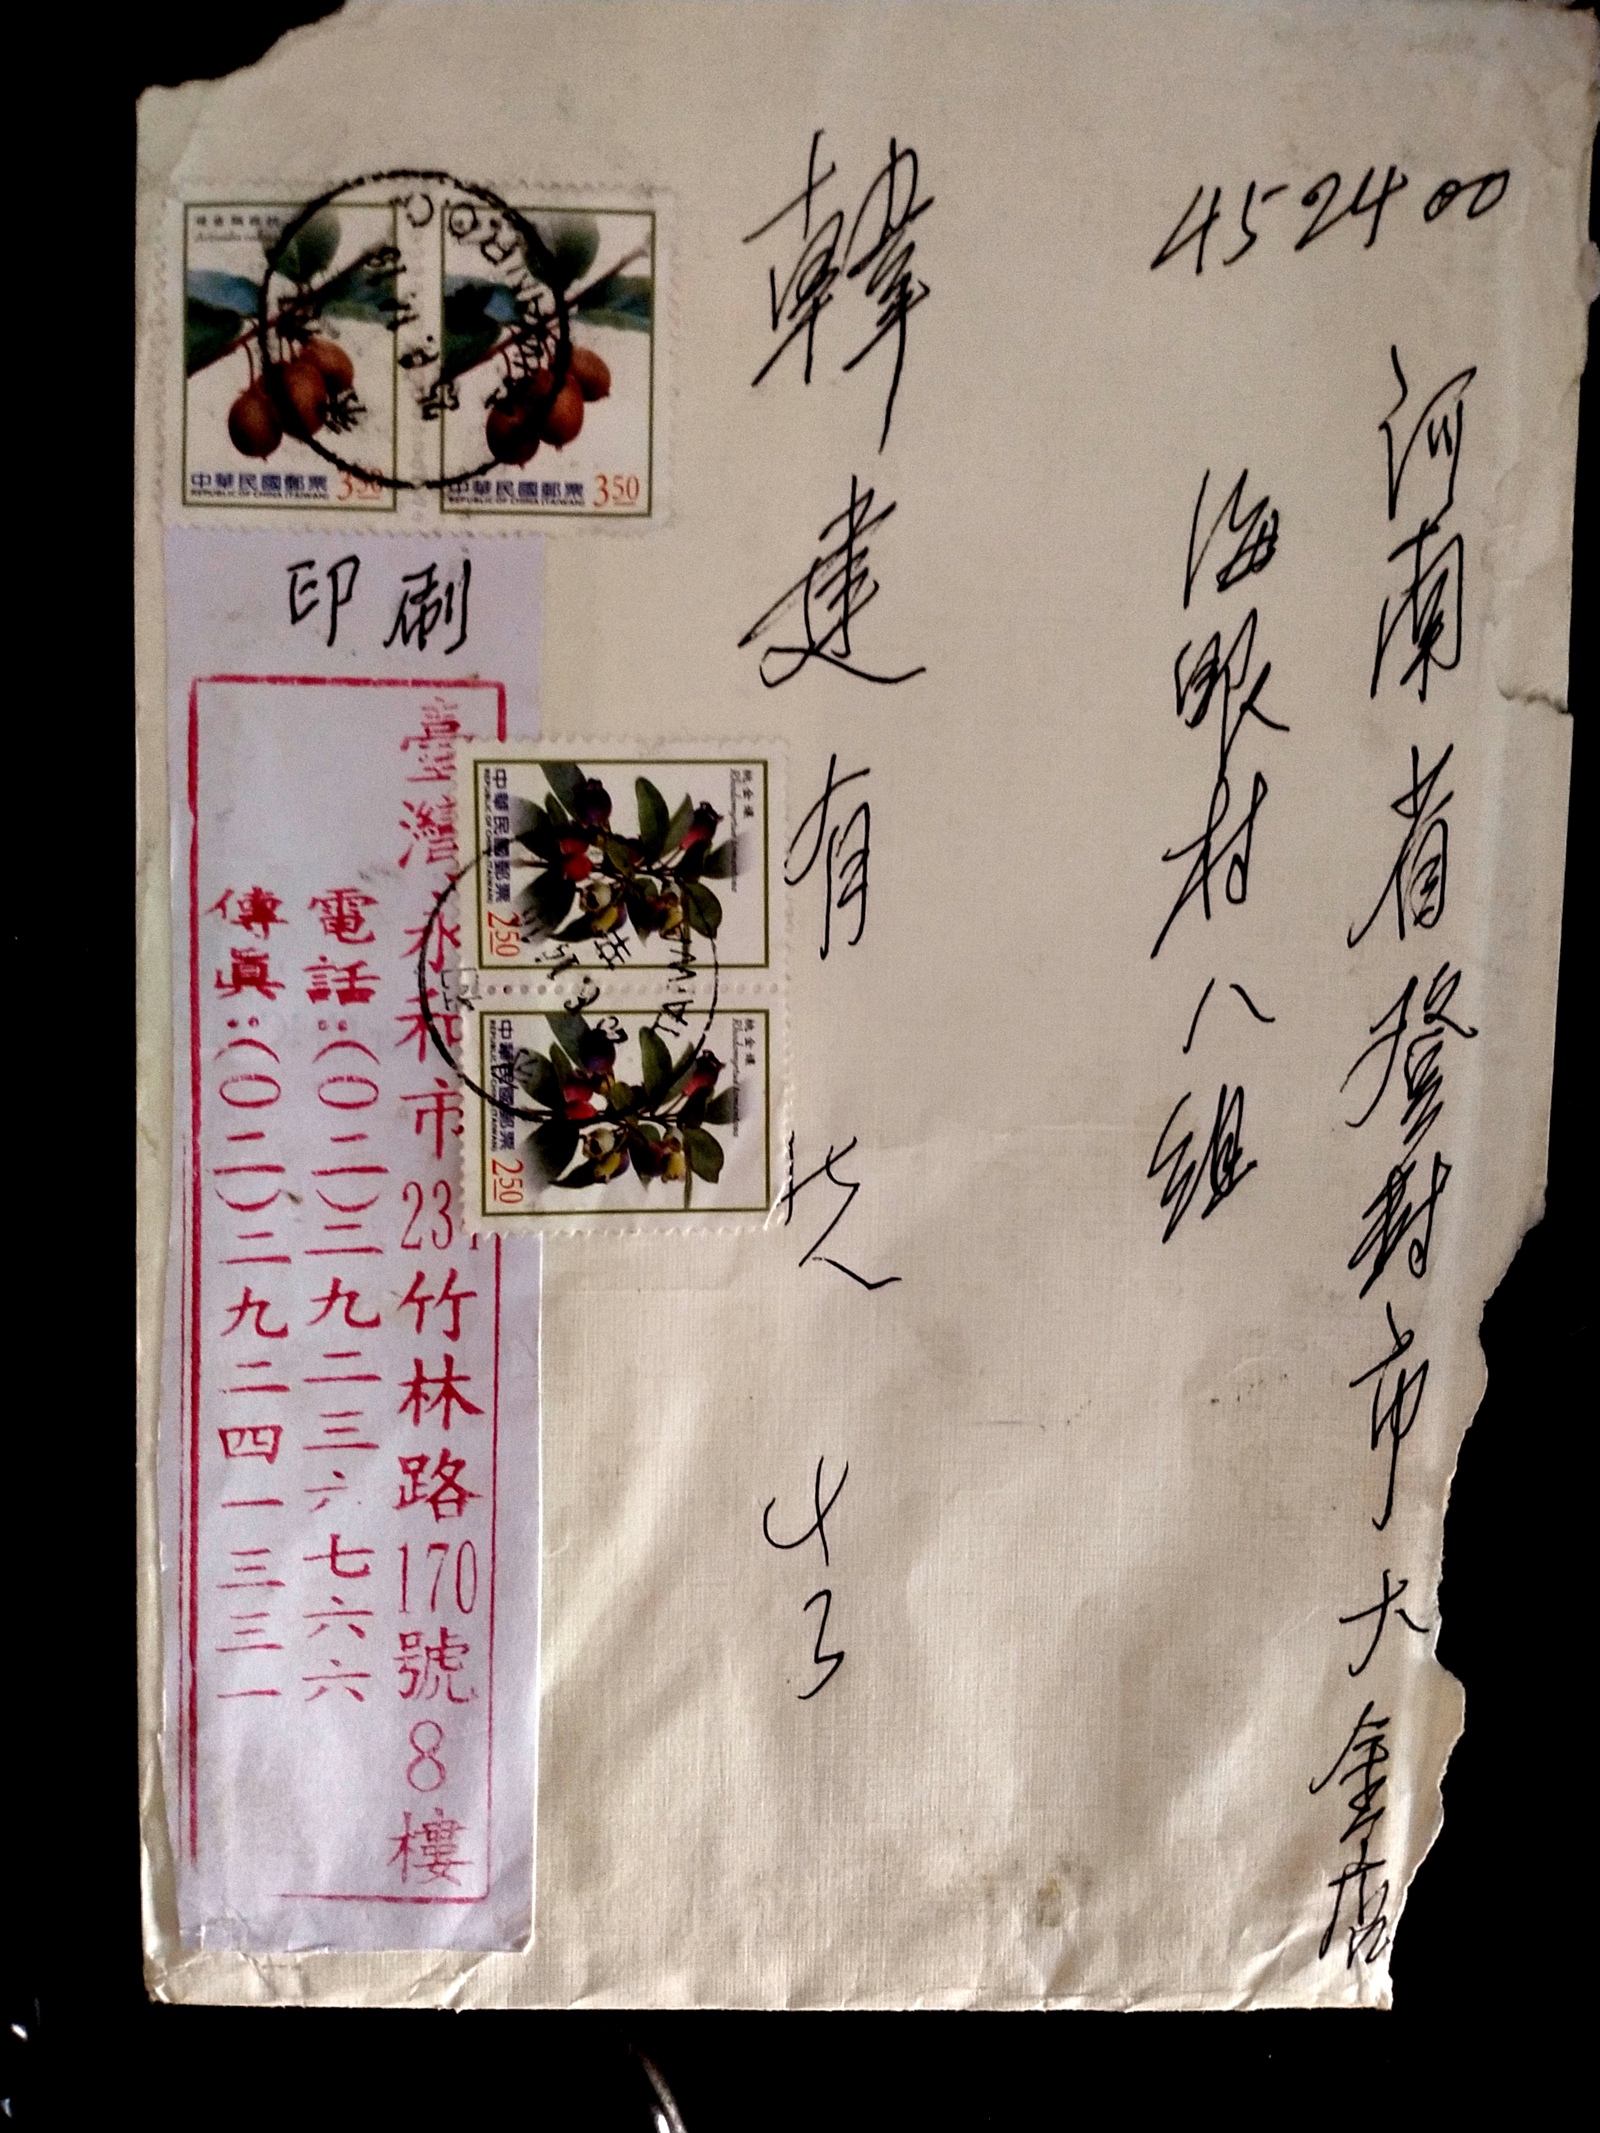 452400
河南省登封市大金店
海眼村八组
韓建有
印刷
臺灣永和市23竹林路170號8樓
電話:(〇二)二九二三六七六六
傳眞:(〇二)二九二四一三三一
中華民國郵票
REPUBLIC OF CHINA (TAIWAN)
350
中華民國郵票
REPUBLIC OF CHINA (TAIWAN)
350
桃金孃
中華民國郵票
REPUBLIC OF CHINA (TAIWAN)
250
桃金孃
中華民國郵票
REPUBLIC OF CHINA (TAIWAN)
250
TAIWAN R.O.C
TAIWA